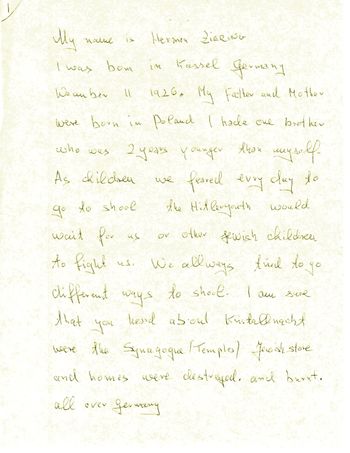 1
My name is Herman
I was born in Kassel Germany
11 1926. My Father and Mother
were born in Poland I hade one brother
who was 2 years younger than myself.
As children we feared evry day to
go to shool the Hitleryouth would
wait for us or other Jewish children
to fight us. We allways tried to go
different ways to shool. I am sure
that you heard about Kristallnacht
were the Synagogue (Temples) Jewish store
and homes were destroyed. and burnt.
all over Germany